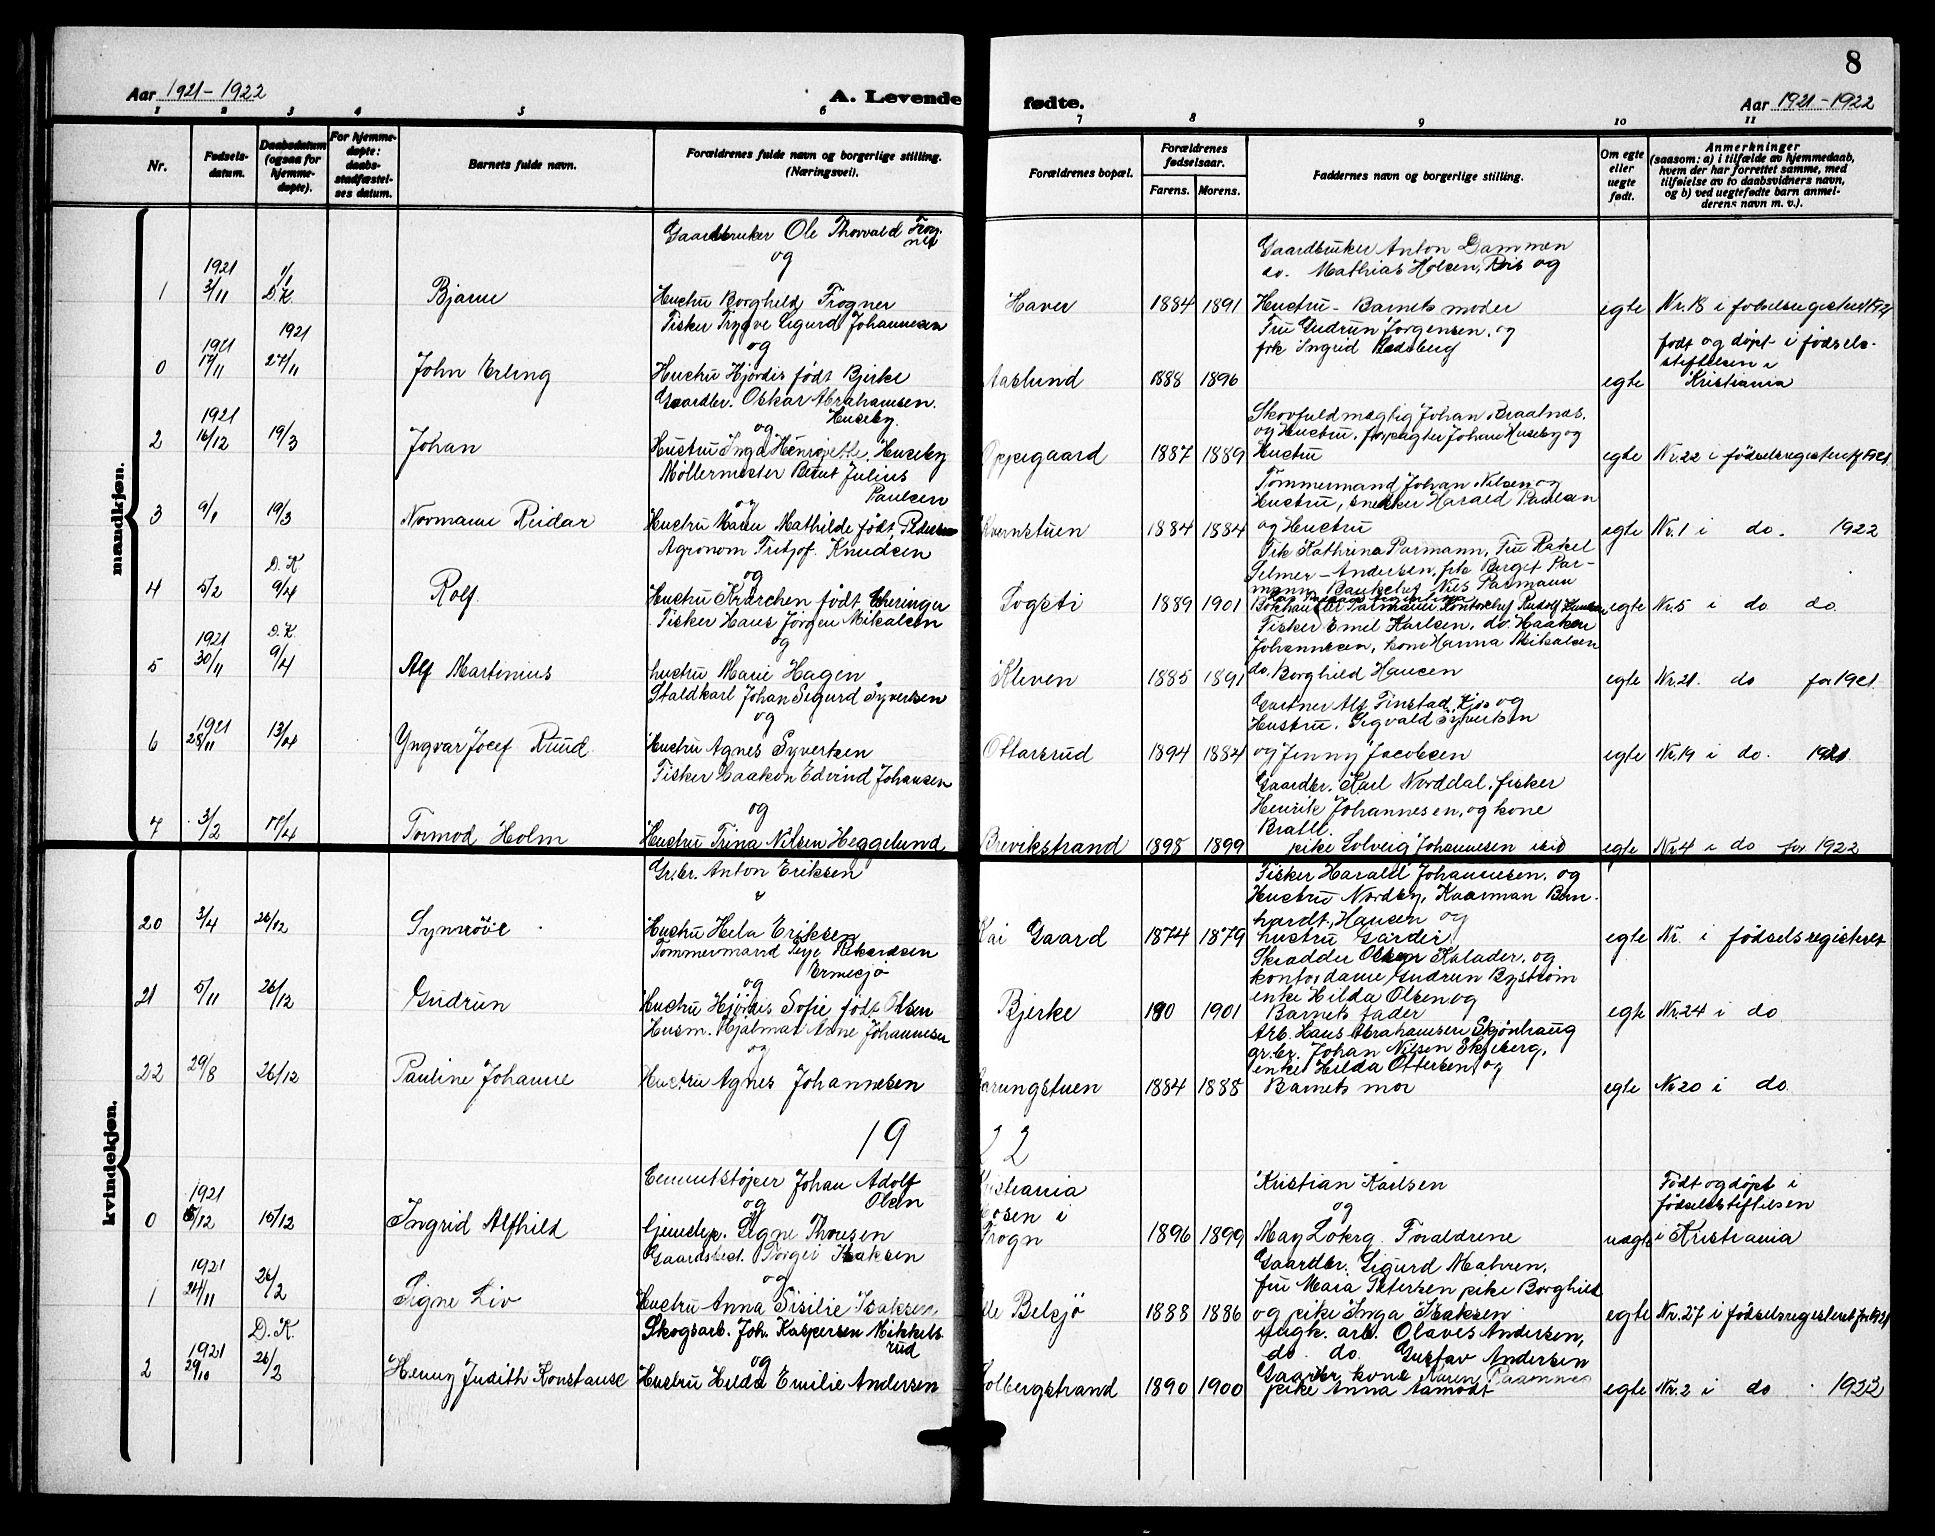 8
Aar 1921-1922
A. Levende fødte.
Aar 1921-1922
1 2 3 4 5 6 7 8 9 10 11
Nr.
Fødsels-
datum.
Daabsdatum
(ogsaa for
hjemme-
døpte).
For hjemme-
døpte:
daabs-
stadfæstel-
ses datum.
Barnets fulde navn.
Forældrenes fulde navn og borgerlige stilling.
(Næringsvei).
Forældrenes bopæl.
Forældrenes
fødselsaar.
Farens. Morens.
Faddernes navn og borgerlige stilling.
Om egte
eller
uegte
født.
Anmerkninger
(saasom: a) i tilfælde av hjemmedaab,
hvem der har forrettet samme, med
tilføielse av to daabsvidners navn,
og b) ved uegtefødte barn anmel-
derens navn m. v.).
mandkjøn.
Gaardbruker Ole Thorvald Frog-
ner
og
1 1921 3/11 1/1 D.K. Bjarne
Hustru Borghild Frogner
Haver 1884 1891
Gaardbruker Anton Dammen
do. Mathias Holsen, Ris og
Hustru - Barnets moder
egte Nr. 18 i fødselsregisteret 1921
Fisker Trygve Sigurd Johannesen
og
0 1921 17/11 1921 27/11 John Erling
Hustru Hjördis født Bjerke
Aaslund 1888 1896
Fru Gudrun Jørgensen, og
frk Ingrid Rodeberg
egte
født og døpt i fødsels-
stiftelsen i
Kristiania
Gaardbr. Oskar Abrahamsen
Huseby
og
2 1921 16/12 19/3 Johan
Hustru Inga Henriette Huseby
Oppegaard 1887 1889
Skovfuldmægtig Johan Braatnas,
og Hustru, forpagter Johan Huseby og
Hustru
egte Nr. 22 i fødselsregisteret f 1921
Møllermester Bernt Julius
Paulsen
og
3 9/1 19/3 Normann Reidar
Hustru Maren Mathilde født Pedersen
Kvernstuen 1884 1884
Tømmermand Johan Nilsen og
Hustru, snekker Harald Paulsen
og Hustru
egte Nr. 1 i do. 1922
Agronom Fritjof Knudsen
og
4 5/2 D.K 9/4 Rolf
Hustru Kaarchen født
Sogsti 1889 1901
Frk Kathrina Parmann, Fru Rakel
Selmer-Andersen, frk Birget Par-
mann, Bankchef Nils Parmann
Parmann Kontorchef Rudolf
egte Nr. 5 i do do
Fisker Hans Jörgen Mikalsen
og
5 1921 30/11 D.K. 9/4 Alf Martinius
hustru Marie Hagen
Kleven 1885 1891
Fisker Emil Karlsen, do. Haakon
Johannesen, kone Hanna Mikalsen
do. Borghild Hansen
egte Nr. 21. do for 1921
Staldkarl Johan Sigurd Syvertsen
og
6 1921 28/11 13/4 Yngvar Josef Ruud
Hustru Agnes Syvertsen
Ottarsrud 1894 1884
Gartner Alf Finstad, Kjos og
Hustru, Sigvald Syvertsen
og Jenny Jacobsen
egte Nr. 19 i do. 1921
Fisker Haakon Edvind Johansen
og
7 3/2 17/4 Tormod Holm
Hustru Trina Nilsen Heggelund
Brevikstrand 1898 1899
Gaardbr. Karl Norddal, fisker
Henrik Johannesen, og kone
Bratli.
pike Solveig Johannesen
egte Nr. 4 i do for 1922
kvindekjøn.
Grbr. Anton Eriksen
20 3/4 26/12 Synnöve
Hustru Hela Eriksen
Kai Gaard 1874 1879
Fisker Harald Johannesen, og
Hustru Nordby, Kaarman Bern-
hardt Hansen og
hustru Garder
egte Nr. i fødselsregisteret
Tömmermand
Ermesjø
og
21 5/11 26/12 Gudrun
Hustru Hjördis Sofie født Olsen
Bjerke 1901
Skrædder Kolader, og
kontordame Gudrun Byström
enke Hilda Olsen og
Barnets fader
egte Nr. 24 i do
Husm. Hjalmar Arne Johannesen
og
22 29/8 26/12 Pauline Johanne
Hustru Agnes Johannesen
1884 1888
Arb. Hans Abrahamsen Skjønhaug
gr.br. Johan Nilsen Skjeberg,
enke Hilda Ottersen, og
Barnets mor
egte Nr 20 i do
19 22
Cementstøper Johan Adolf
Olsen
og
0 1921 5/12 15/12 Ingrid Alfhild
tjenestep. Signe Thoresen
Kristiania
Mosen i
Frogn
1896 1899
Kristian Karlsen
og
May Loberg Forældrene
uegte
Født og døpt i
fødselsstiftelsen
i Kristiania
Gaardsbest. Torger Isaksen
og
1 1921 24/11 26/2 Signe Liv
Hustru Anna Sisilie Isaksen
Belsjø 1888 1886
Gaardbr. Sigurd Mahren,
fru Maria Petersen pike Borghild
og pike Inga Isaksen
egte Nr. 27 i fødselsregisteret for 1921
Skogsarb. Joh. Kaspersen Mikkels-
rud
og
2 1921 29/10 D.K. 26/2 Henny Judith Konstanse
Hustru Hilda Emilie Andersen
Holbergstrand 1890 1900
ungk. arb. Olaves Andersen,
do. do. Gustav Andersen
Gaardbr. kone Karen
pike Anna Aamodt
egte Nr. 2 i do 1922